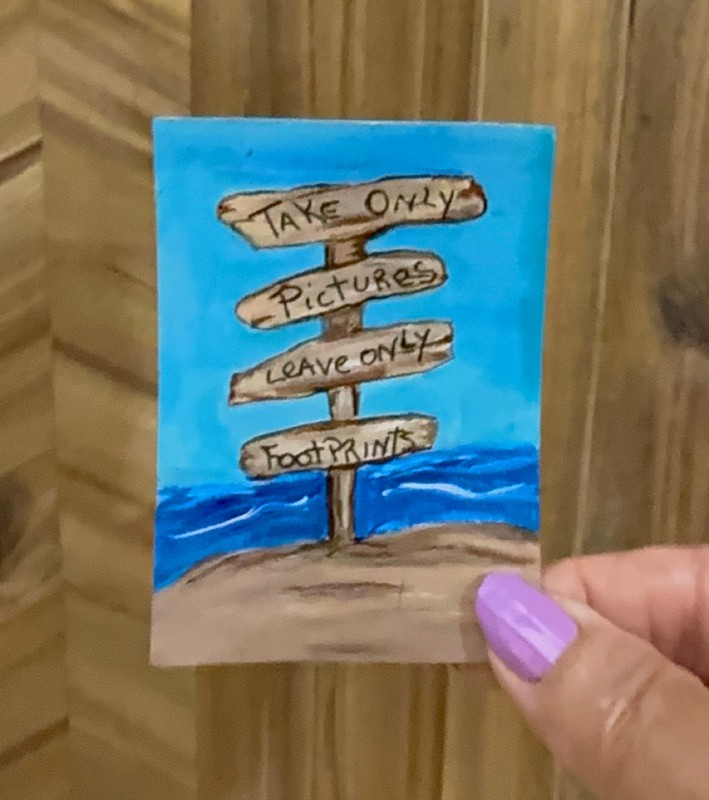 TAKE ONLY
PictuReS
LEAVE ONLY
FootPRINtS